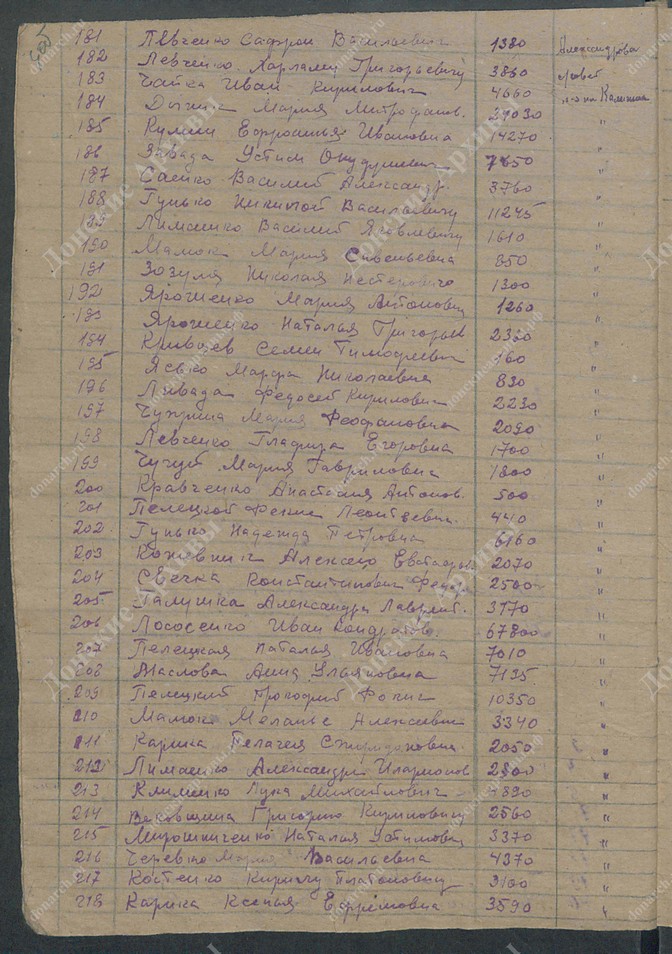 181 Левченко Сафрон Васильевич 1380 Александрова
182 Левченко Харламу Григорьевичу 3860 совет
183 Чайка Иван Кирилович 4660
184 Мария Митрофанов. 29030 "
185 Ефросинья Ивановна 14270 "
186 Завада Устин 7650 "
187 Саенко Василий Александр. 3760 "
188 Гунько Никитой Васильевичу 11245 "
189 Лимашко Василий Яковлевичу 1610 "
190 Мамок Мария Савельевна 850 "
191 Зозуля Николая Нестерович 1300 "
192 Ярошенко Мария Антоновн 1260 "
193 Ярошенко Наталья Григорьев 2360 "
194 Семен Тимофеевич 160 "
195 Ясько Марфа Николаевна 830 "
196 Левада Федосей Кирилович 2230 "
197 Мария Феофановна 2090 "
198 Левченко Глафира Егоровна 1700 "
199 Чугуй Мария Гавриловна 1800 "
200 Кравченко Анастасия Антонов. 500 "
201 Пелецкой Леонтьевич 440 "
202 Гунько Надежда Петровна 6160 "
203 Кожевник 2070 "
204 Свечка Константинович 2500 "
205 Галушка Александра Лаврент. 3170 "
206 Лососенко Иван Кондратов. 67800 "
207 Пелецкая Наталья Ивановна 7010 "
208 Маслова Анна Ульяновна 7135 "
209 Пелецкий Прокофий Фомич 10350 "
210 Мамок Меланье Алексеевн 3340 "
211 Карика Пелагея Спиридоновна 2050 "
212 Лимашко Александра Иларионов 2800 "
213 Клименко Лука Михайлович "
214 Григорию Кириловичу 2560 "
215 Мирошниченко Наталья Устимовн 3370 "
216 Черевко Мария Васильевна 4370 "
217 Костенко Кирилу Платоновичу 3100 "
218 Карика Ксенья Ефремовна 3590 "
donarch.ru
Донские Архивы